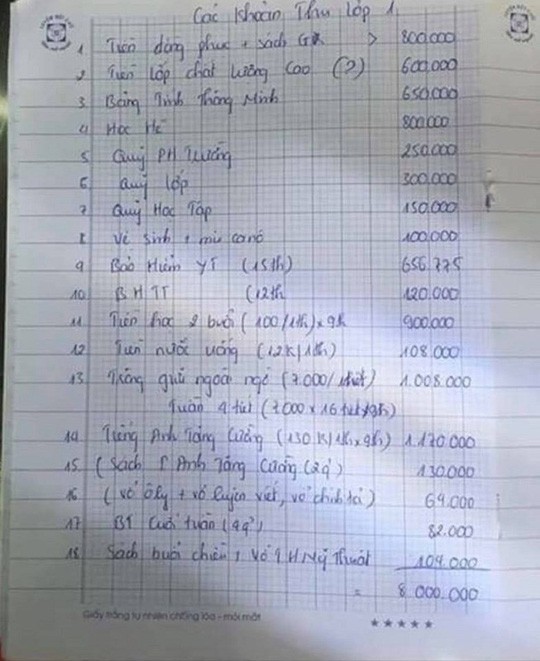 Các khoản Thu lớp 1
1 Tiền đồng phục + sách GK > 800.000
2 Tiền lớp chất lượng cao (?) 600.000
3 Bảng Tính Thông Minh 650.000
4 Học Hè 800.000
5 Quỹ PH Trường 250.000
6 Quỹ lớp 300.000
7 Quỹ Học Tập 150.000
8 Vệ sinh + mũ ca nô 100.000
9 Bảo Hiểm YT (15th) 656.775
10 BHTT (12th 120.000
11 Tiền học 2 buổi (100/1th) x 9th 900.000
12 Tiền nước uống (12K/1th) 108.000
13 Trông giữ ngoài ngờ (7.000/1tiết) 1.008.000
Tuần 4 tiết (7.000 x 16 tiết/9th)
14 Tiếng Anh Tăng Cường (130K/1th x 9th) 1.170.000
15 (Sách T Anh Tăng Cường (2q) 130.000
16 (vở ôly + vở luyện viết, vở chính tả) 69.000
17 BT Cuối tuần (4q) 82.000
18 Sách buổi chiều, Vở TH Mỹ Thuật 104.000
= 8.000.000
Giấy trắng tự nhiên chống lóa - mỏi mắt
★★★★★